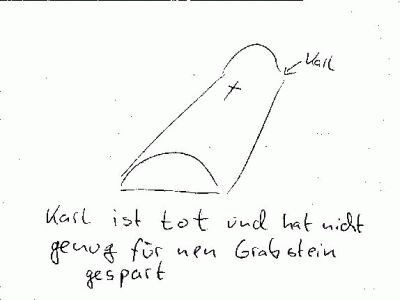 Karl
Karl ist tot und hat nicht
genug für nen Grabstein
gespart